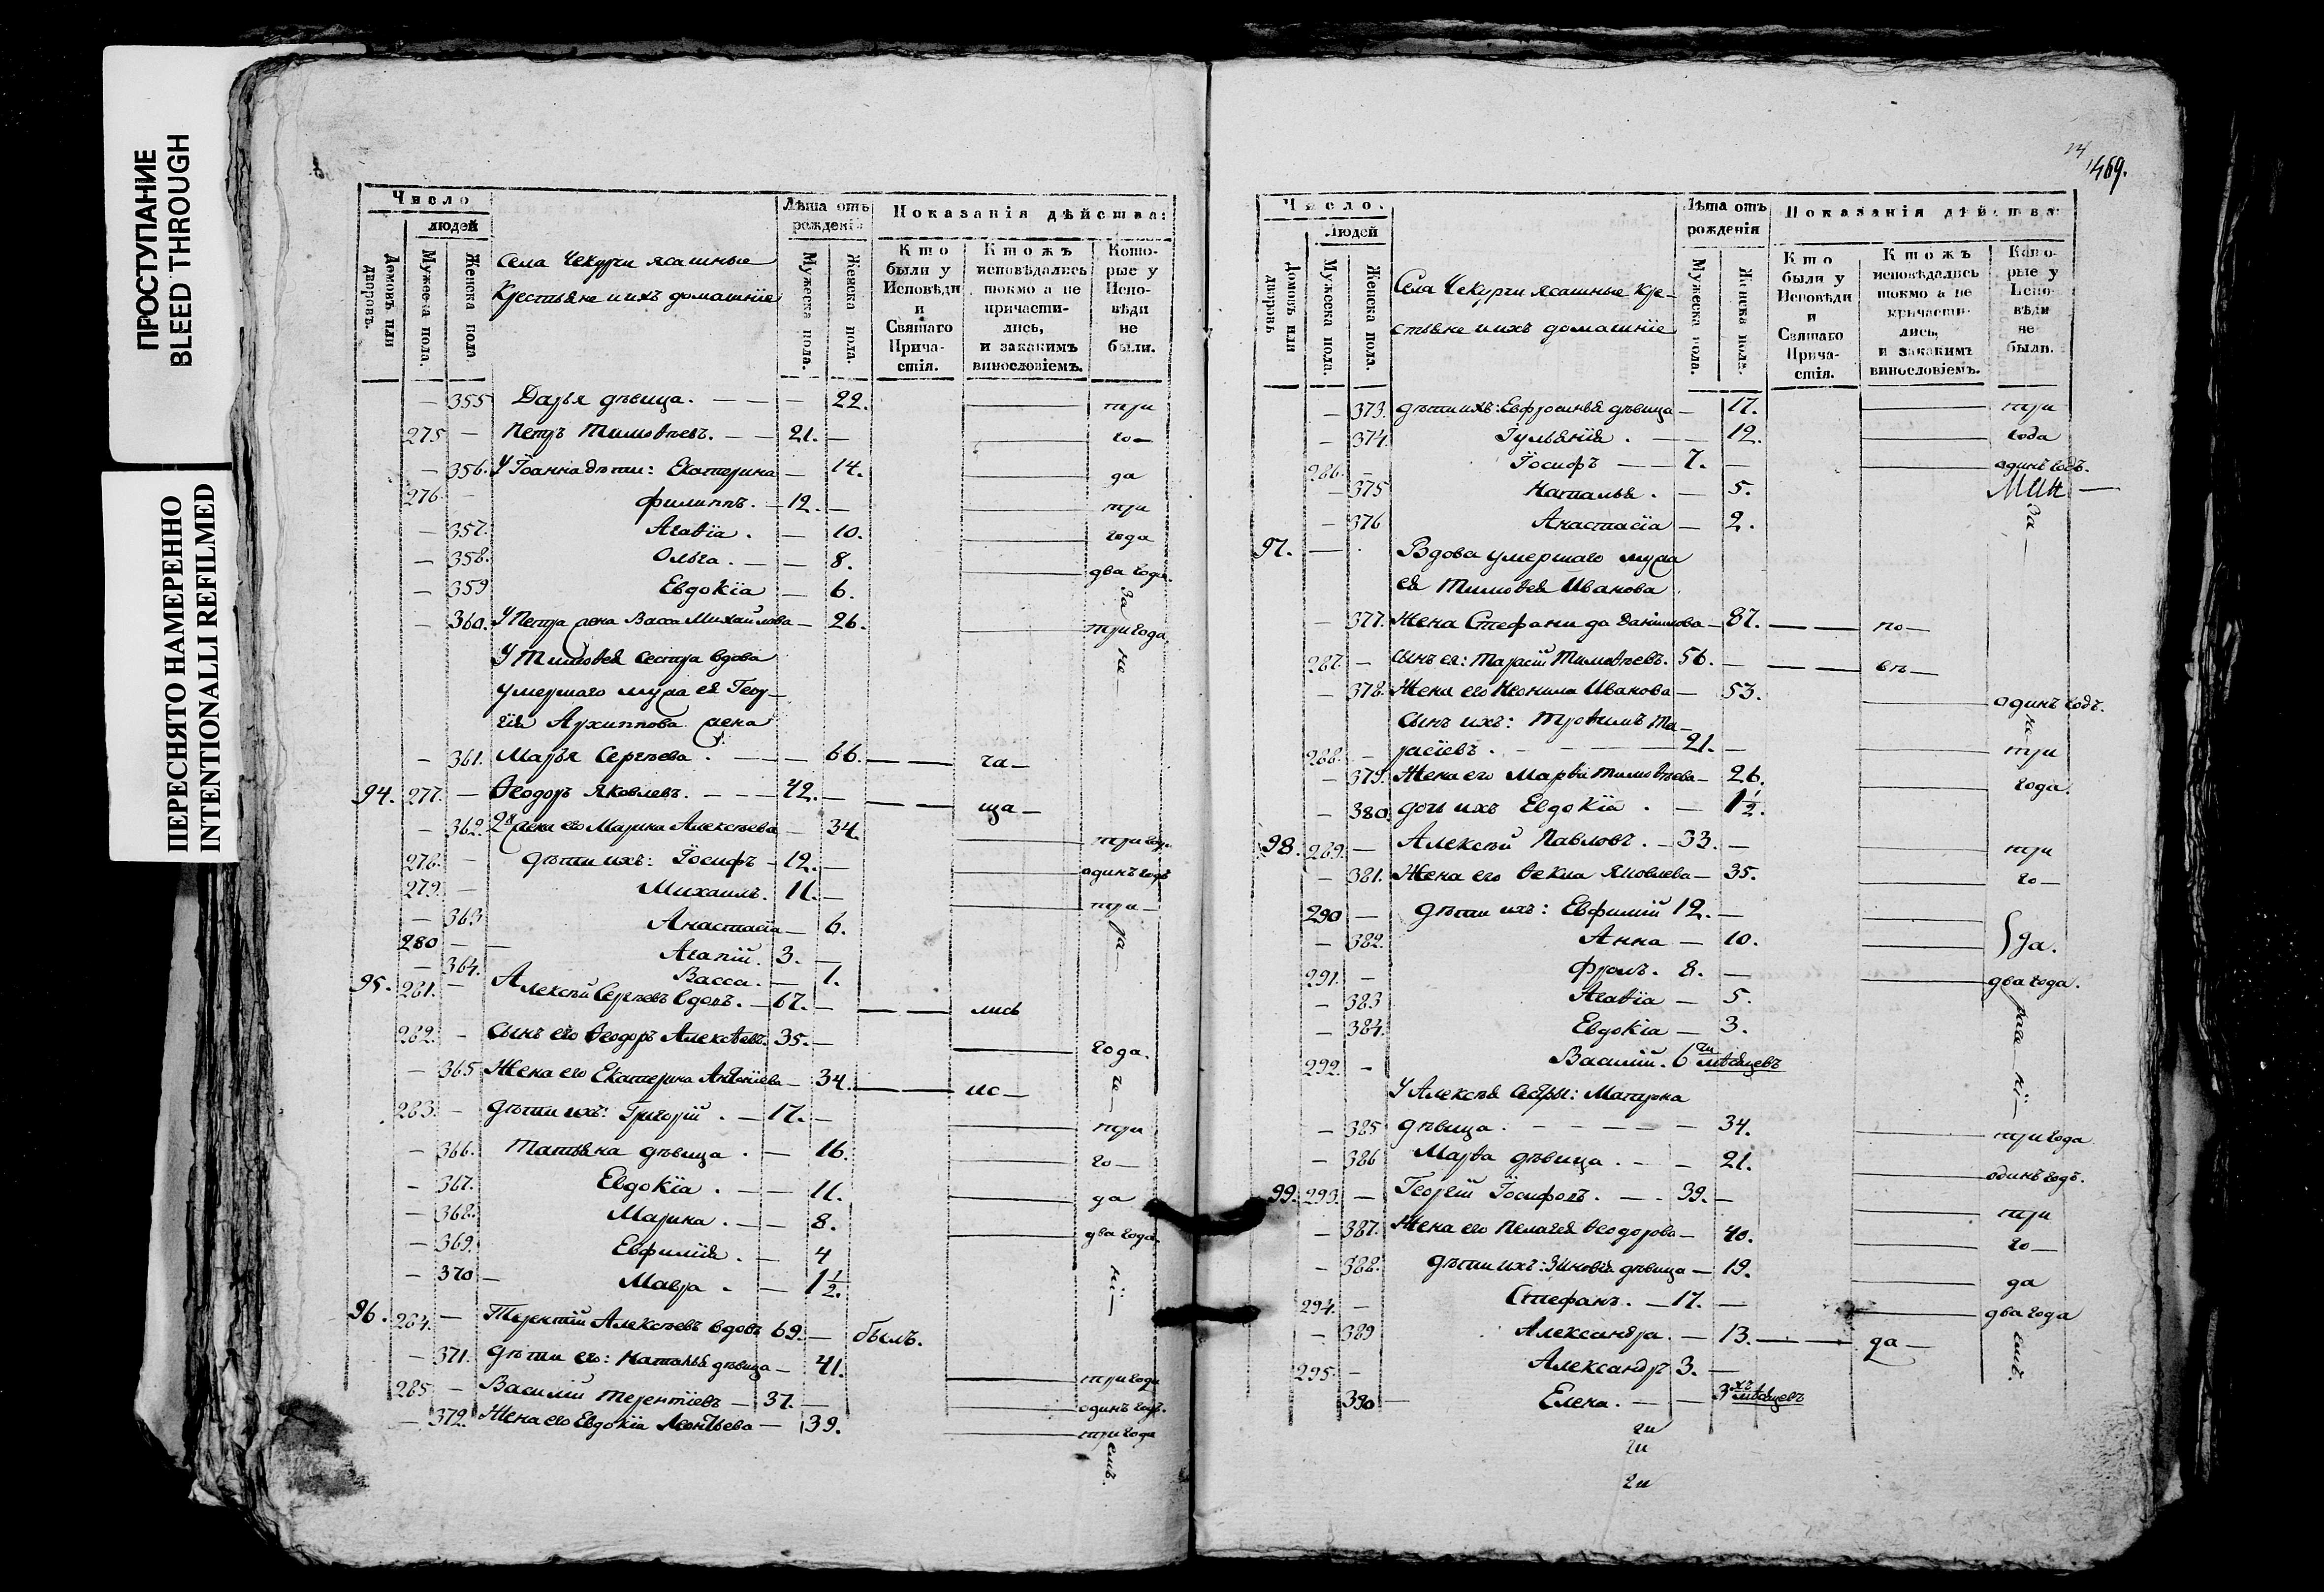 ПРОСТУПАНИЕ
BLEED THROUGH
ПЕРЕСНЯТО НАМЕРЕННО
INTENTIONALLI REFILMED
Число
людей
Домовъ или дворовъ.
Мужеска пола.
Женска пола.
Села Чекурчи ясашные
Крестьяне и ихъ домашнїе
Лѣта отъ рожденія
Мужеска пола.
Женска пола.
Показанія дѣйства:
Кто были у Исповѣди и Святаго Прича- стія.
Ктожъ исповѣдались токмо а не причасти- лись, и закакимъ винословіемъ.
Кото- рые у Испо- вѣди не были.
— 355 Дарья дѣвица. — — — 22. три
275 — Петръ Тимоѳѣевъ. — — 21. — го—
— 356. У Іоанна дѣти: Екатерина — 14. да
276 — Филиппъ. — 12. — три
— 357. Агаѳїа . — 10. года
— 358. Ольга . — — 8. два года.
— 359 Евдокїа — 6. За
— 360. У Петра жена Васса Михайлова — 26. три года.
У Тимоѳея Сестра вдова не—
умершаго мужа ея Геор—
гїя Архиппова жена
— 361. Марья Сергѣева . — — — 66. — — ча—
94. 277. — Ѳеодоръ Яковлевъ. — — — 42. — — — ща—
— 362. 2я жена его Марина Алексѣева — 34. три год.
278. — дѣти ихъ: Їосифъ — 12. — одинъ годъ
279. — Михаилъ. 11. — три—
— 363 Анастасїа — 6.
280 — — Агапїй. 3. —
— 364. Васса. — 1.
95. 281. — Алексѣй Сергѣевъ вдовъ. — 67. — — — лись
282. — Сынъ его Ѳеодоръ Алексѣевъ. 35. — года.
— 365 Жена его Екатерина Антонїева — 34. — — ис—
283. — дѣти ихъ: Григорїй . — 17. — три
— 366. Татьяна дѣвица . — 16. го—
— 367. Евдокїа . — — 11. да
— 368. Марина . — — 8. два года.
— 369. Евфимїя . — 4
— 370 — Мавра . — 1½.
96. 284. — Терентїй Алексѣевъ вдовъ 69. — былъ.
— 371. дѣти его: Наталья дѣвица — 41. три года
285 — Василїй Терентїевъ — 37. — одинъ годъ.
— 372. Жена его Евдокїа Леонтьева — 39. три года
емъ.
24
469.
Число.
Людей
Домовъ или дворовъ
Мужеска пола.
Женска пола.
Села Чекурчи ясашные кре—
стьяне и ихъ домашнїе
Лѣта отъ рожденія
Мужеска пола.
Женска пола.
Показанія дѣйства:
Кто были у Исповѣди и Святаго Прича- стія.
Ктожъ исповѣдались токмо а не причасти- лись, и закакимъ винословіемъ.
Кото- рые у Испо- вѣди не были.
— 373. дѣти ихъ: Евфросинья дѣвица — 17. три
— 374. Їульянїя . — — 12. года
286. — Їосифъ — — 7. — одинъ годъ.
— 375 Наталья . — 5.
— 376 Анастасїа — 2. За—
97. — . Вдова умершаго мужа
ея Тимоѳея Иванова
— 377. Жена Стефанида Данилова — 87. — — по—
287. — Сынъ ея: Тарасїй Тимоѳѣевъ. 56. — — — въ—
— 378. Жена его Неонила Иванова — 53. одинъ годъ.
Сынъ ихъ: Трофимъ Та—
288. — расїевъ . — — — — 21. — три
— 379. Жена его Марѳа Тимоѳѣева — 26. года.
— 380. дочь ихъ Евдокїа . — 1½.
98. 289. — Алексѣй Павловъ . — 33. — три
— 381. Жена его Ѳекла Яковлева — 35. го—
290 — дѣти ихъ: Евфимїй 12. —
— 382. Анна — 10. да.
291. — Фролъ. 8. — два года.
— 383 Агаѳїа — 5.
— 384. Евдокїа — 3.
292. — Василїй. 6ти мѣсяцевъ
У Алексѣя Сестры: Матрона
— 385 дѣвица . — — — — — 34. три года.
— 386 Марѳа дѣвица . — — 21. одинъ годъ.
99. 293. — Георгїй Їосифовъ. — — 39. — три
— 387. Жена его Пелагея Ѳеодорова — 40. го—
— 388. дѣти ихъ: Зиновїа дѣвица — 19. да
294. — Стефанъ. — 17. — два года
— 389 Александра. — 13. — — да—
295. — Александръ 3. —
390 — Елена. — — 3хъ мѣсяцевъ